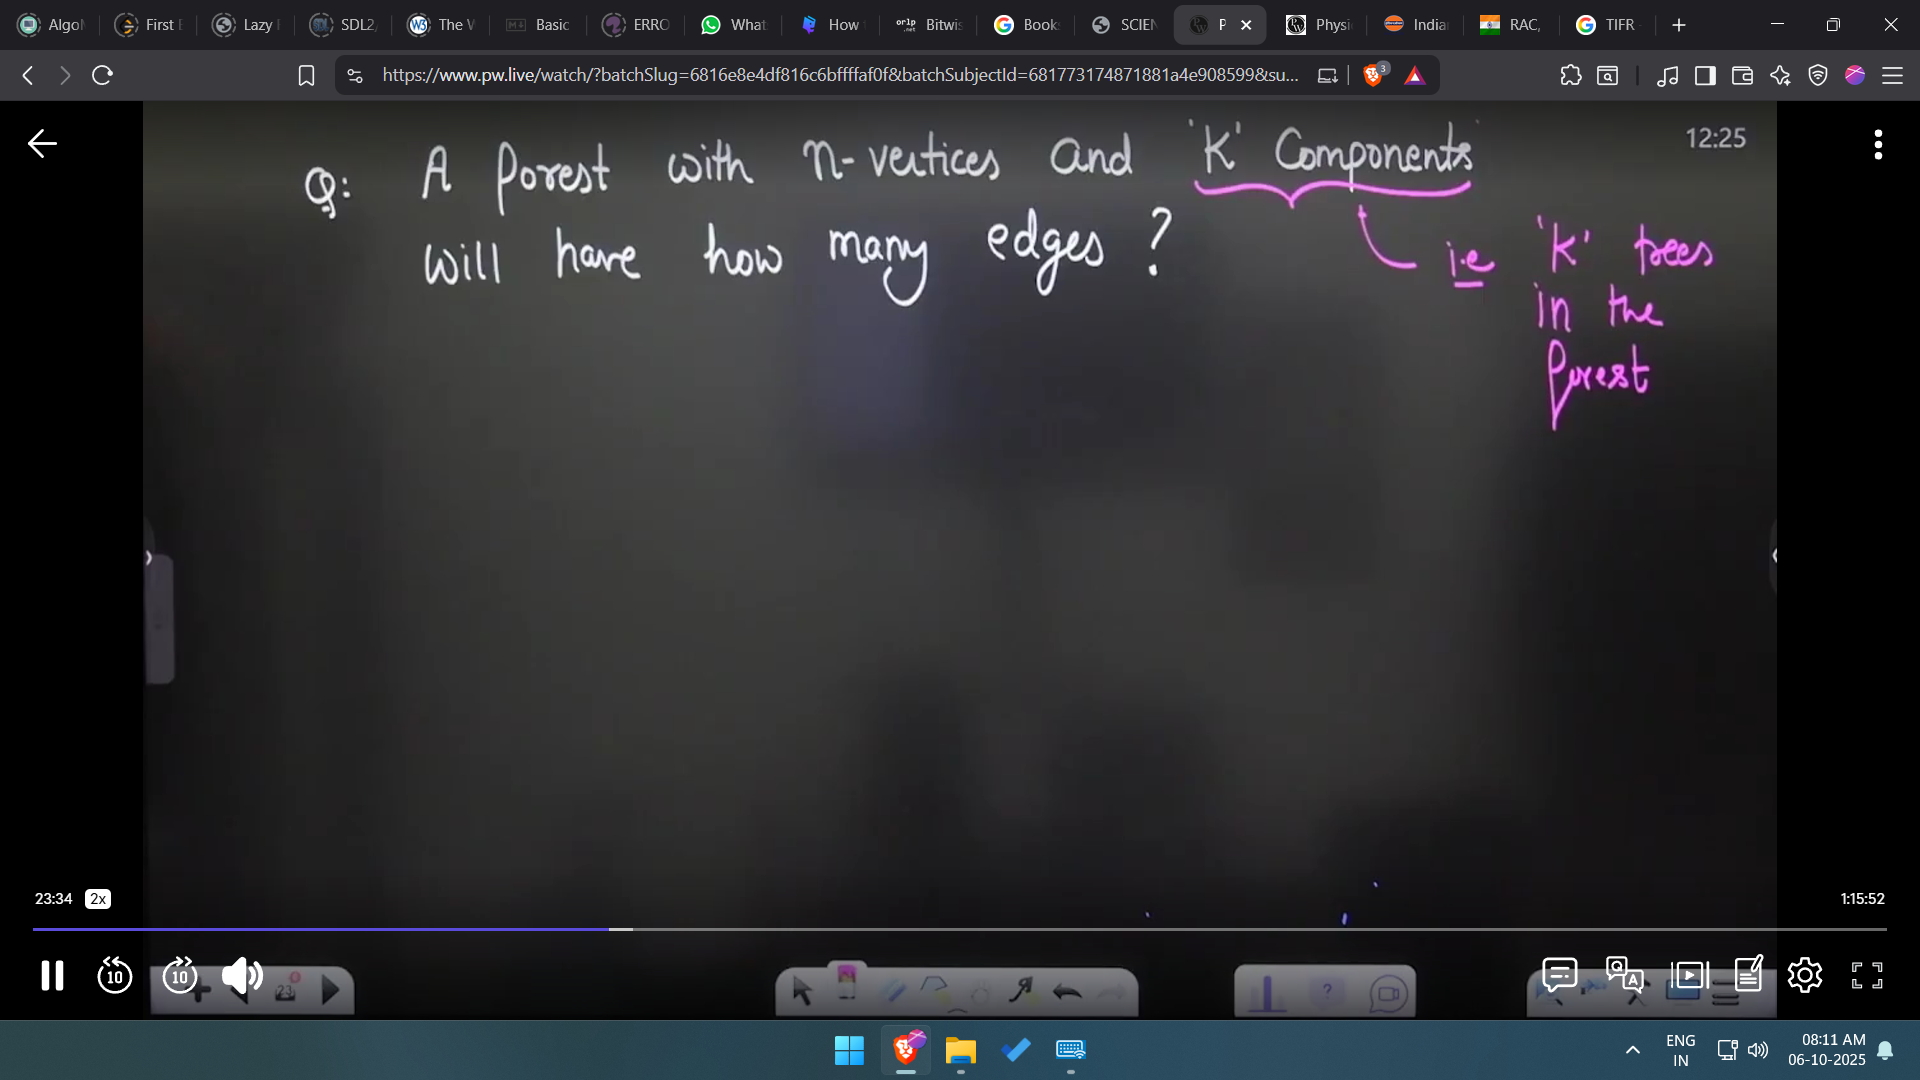 Algo
First E
Lazy
SDL2,
The W
Basic
ERRO
What
How
Bitwis
Book
SCIEN
P
Physi
India
RAC,
TIFR
https://www.pw.live/watch/?batchSlug=6816e8e4df816c6bffffaf0f&batchSubjectId=681773174871881a4e908599&su...
3
12:25
Q: A forest with n-vertices and 'K' Components
will have how many edges ?
i.e 'K' trees
in the
forest
23:34 2x
1:15:52
10
10
23
ENG
IN
08:11 AM
06-10-2025